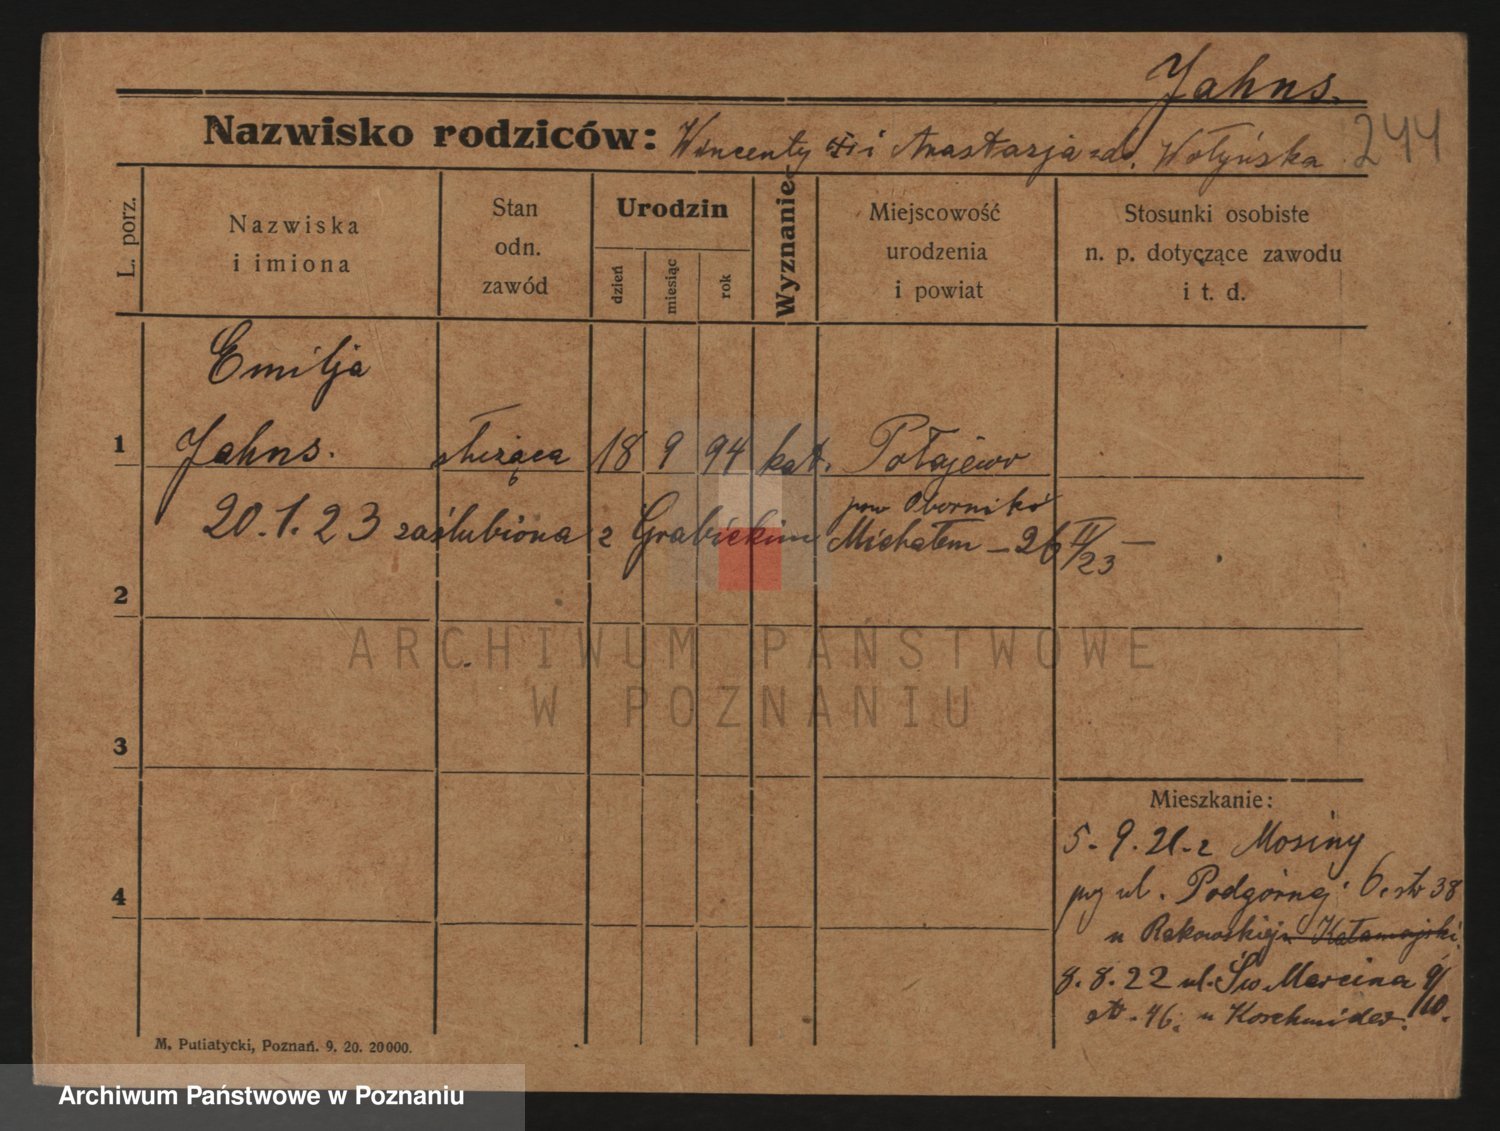 Jahns.
244
Nazwisko rodziców: Wincenty i Anastazja Wołyńska
L. porz.
Nazwiska
i imiona
Stan
odn.
zawód
Urodzin
dzień
miesiąc
rok
Wyznanie
Miejscowość
urodzenia
i powiat
Stosunki osobiste
n. p. dotyczące zawodu
i t. d.
Emilja
1 Jahns. służąca 18 9 94 kat. Połajewo
pow Oborniki
20.1.23 zaślubiona z Grabickim Michałem – 26 II/23 –
2
3
4
Mieszkanie:
5.9.21. z Mosiny
ul. Podgórnej 6. str 38
u Rakowskiej
8.8.22 ul. Św Marcina 9/10.
46. u
M. Putiatycki, Poznań. 9. 20. 20000.
ARCHIWUM PAŃSTWOWE
W POZNANIU
Archiwum Państwowe w Poznaniu